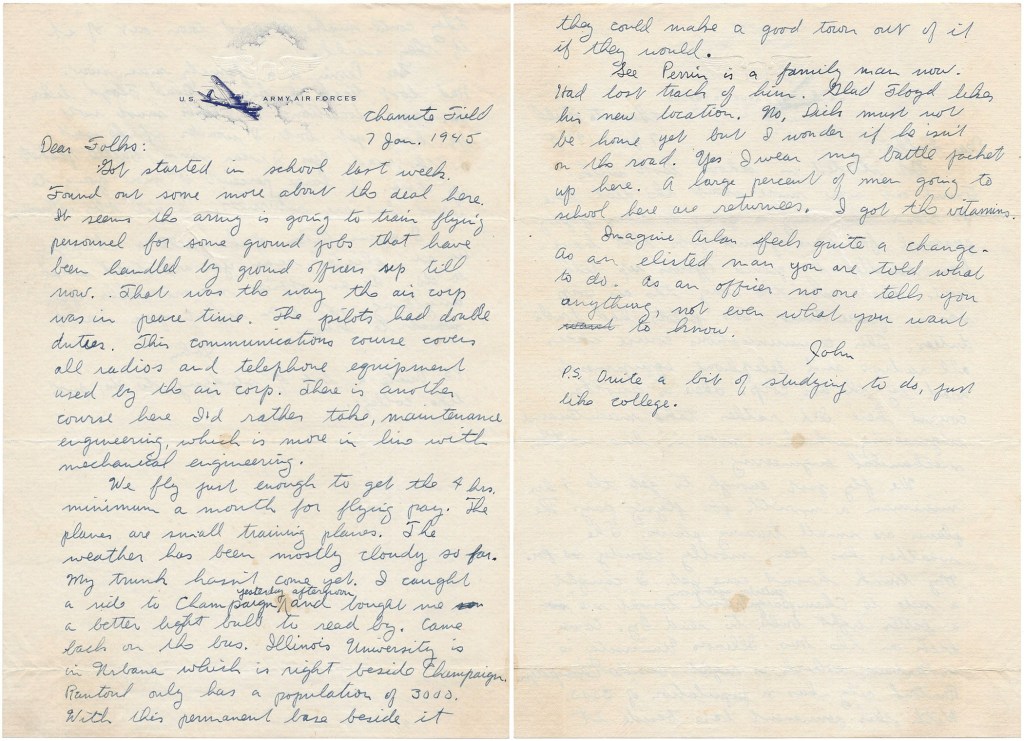 U.S. ARMY AIR FORCES
Chanute Field
7 Jan. 1945
Dear Folks:
Got started in school last week.
Found out some more about the deal here.
It seems the army is going to train flying
personnel for some ground jobs that have
been handled by ground officers up till
now. That was the way the air corp
was in peace time. The pilots had double
duties. This communications course covers
all radios and telephone equipment
used by the air corp. There is another
course here I'd rather take, maintenance
engineering, which is more in line with
mechanical engineering.
We fly just enough to get the 4 hrs.
minimum a month for flying pay. The
planes are small training planes. The
weather has been mostly cloudy so far.
My trunk hasn't come yet. I caught
yesterday afternoon
a ride to Champaign and bought me
a better light bulb to read by. Came
back on the bus. Illinois University is
in Urbana which is right beside Champaign
Rantoul only has a population of 3000.
With this permanent base beside it
they could make a good town out of it
if they would.
See Perrin is a family man now.
Had lost track of him. Glad Floyd likes
his new location. No, must not
be home yet but I wonder if he isn't
on the road. Yes I wear my battle jacket
up here. A large percent of men going to
school here are returnees. I got the vitamins.
Imagine Arlan feels quite a change.
As an elisted man you are told what
to do. As an officer no one tells you
anything, not even what you want
to know.
John
P.S. Quite a bit of studying to do, just
like college.